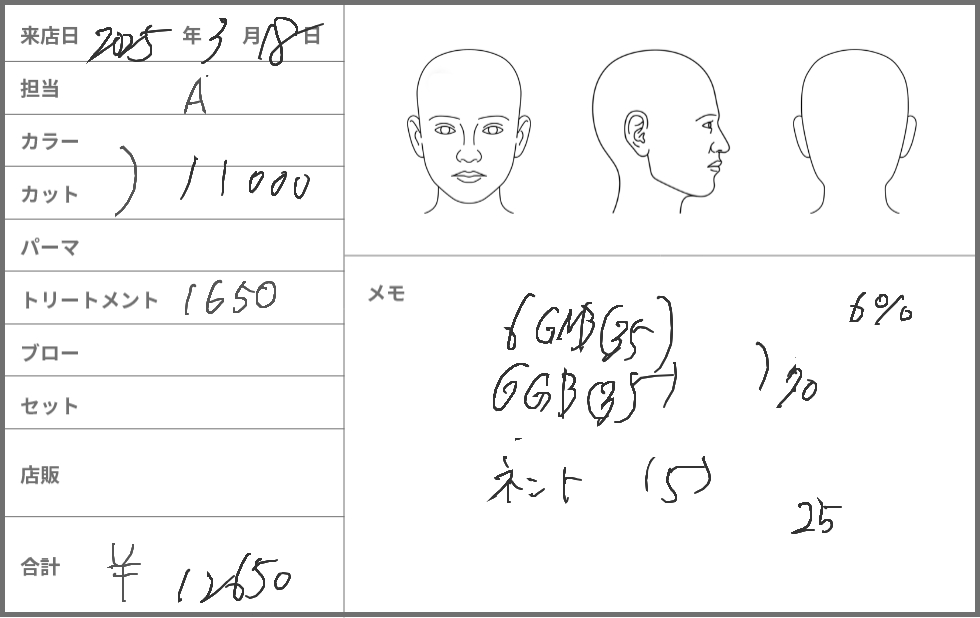 来店日 2025年3月18日
担当 A
カラー
カット ) 11000
パーマ
トリートメント 1650
ブロー
セット
店販
合計 ¥ 12650
メモ
6GMB(35) 6%
6GB(35) ) 70
ネント (5)
25